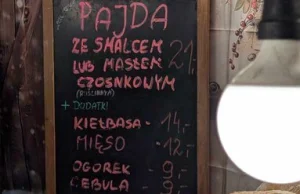 PAJDA
ZE SMALCEM 21,-
LUB MASŁEM
CZOSNKOWYM
+ DODATKI
KIEŁBASA - 14,-
MIĘSO - 12,-
OGÓREK - 9,-
CEBULA - 9,-